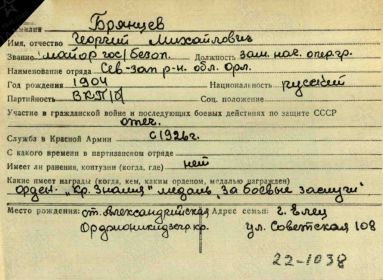 Фамилия Брянцев
Имя, отчество Георгий Михайлович
Звание майор гос/безоп. Должность зам. нач. опер.гр.
Наименование отряда Сев-зап р-н. обл. орл.
Год рождения 1904 Национальность русский
Партийность ВКП/б Соц. положение
Участие в гражданской войне и последующих боевых действиях по защите СССР
отеч.
Служба в Красной Армии с 1926г.
С какого времени в партизанском отряде
Имеет ли ранения, контузии (когда, где) нет
Какие имеет награды (когда, кем, каким орденом, медалью награжден)
орден. "Кр. Знамя" медаль "За боевые заслуги"
Место рождения: ст. Александрийская Адрес семьи: г. Елец
Орджоникидзев. кр. ул. Советская 108
22-1038